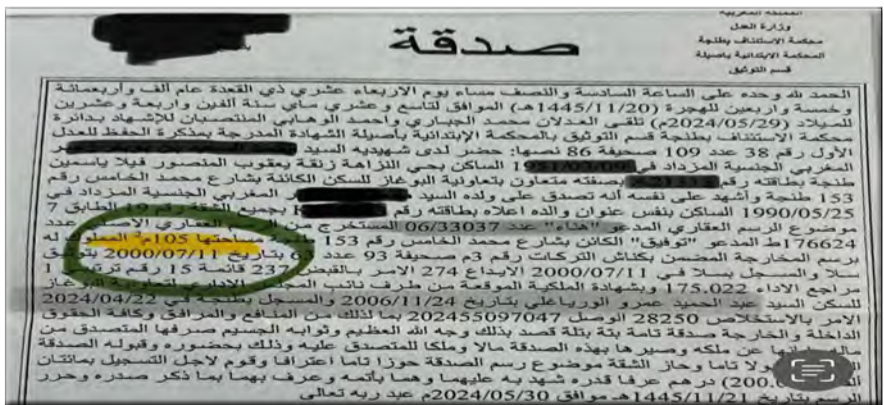 المملكة المغربية
وزارة العدل
محكمة الاستئناف بطنجة
المحكمة الابتدائية بأصيلة
قسم التوثيق
صدقة
الحمد لله وحده على الساعة السادسة والنصف مساء يوم الاربعاء عشري ذي القعدة عام ألف وأربعمائة
و خمسة واربعين للهجرة (1445/11/20هـ) الموافق لتاسع وعشري ماي سنة ألفين واربعة وعشرين
للميلاد (2024/05/29م) تلقى العدلان محمد الجباري واحمد الوهابي المنتصبان للإشهاد بدائرة
محكمة الاستئناف بطنجة قسم التوثيق بالمحكمة الإبتدائية بأصيلة الشهادة المدرجة بمذكرة الحفظ للعدل
الأول رقم 38 عدد 109 صحيفة 86 نصها: حضر لدى شهيديه السيد
المغربي الجنسية المزداد في الساكن بحي النزاهة زنقة يعقوب المنصور فيلا ياسمين
طنجة بطاقته رقم بصفته متعاون بتعاونية البوغاز للسكن الكائنة بشارع محمد الخامس رقم
153 طنجة وأشهد على نفسه أنه تصدق على ولده السيد المغربي الجنسية المزداد في
1990/05/25 الساكن بنفس عنوان والده اعلاه بطاقته رقم بجميع الشقة رقم 19 الطابق 7
موضوع الرسم العقاري المدعو "هناء" عدد 06/33037 المستخرج من الرسم العقاري الأم عدد
176624ط المدعو "توفيق" الكائن بشارع محمد الخامس رقم 153 طنجة مساحتها 105م² المملوك له
برسم المخارجة المضمن بكناش التركات رقم 3م صحيفة 93 عدد بتاريخ 2000/07/11 بتوثيق
سلا والمسجل بسلا في 2000/07/11 الايداع 274 الامر بالقبض 237 قائمة 15 رقم ترتيبي 1
مراجع الاداء 175.022 وبشهادة الملكية الموقعة من طرف نائب المجلس الإداري لتعاونية البوغاز
للسكن السيد عبد الحميد عمرو الورياغلي بتاريخ 2006/11/24 والمسجل بطنجة في 2024/04/22
الامر بالاستخلاص 28250 الوصل 202455097047 بما لذلك من المنافع والمرافق وكافة الحقوق
الداخلة و الخارجة صدقة تامة بتة بتلة قصد بذلك وجه الله العظيم وثوابه الجسيم صرفها المتصدق من
ماله وابانها عن ملكه وصيرها بهذه الصدقة مالا وملكا للمتصدق عليه وذلك بحضوره وقبوله الصدقة
قبولا تاما وحاز الشقة موضوع رسم الصدقة حوزا تاما اعترافا وقوم لاجل التسجيل بمائتان
درهم عرفا قدره شهد به عليهما وهما بأتمه وعرف بهما بما ذكر صدره وحرر
الرسم بتاريخ 1445/11/21هـ موافق 2024/05/30م عبد ربه تعالى